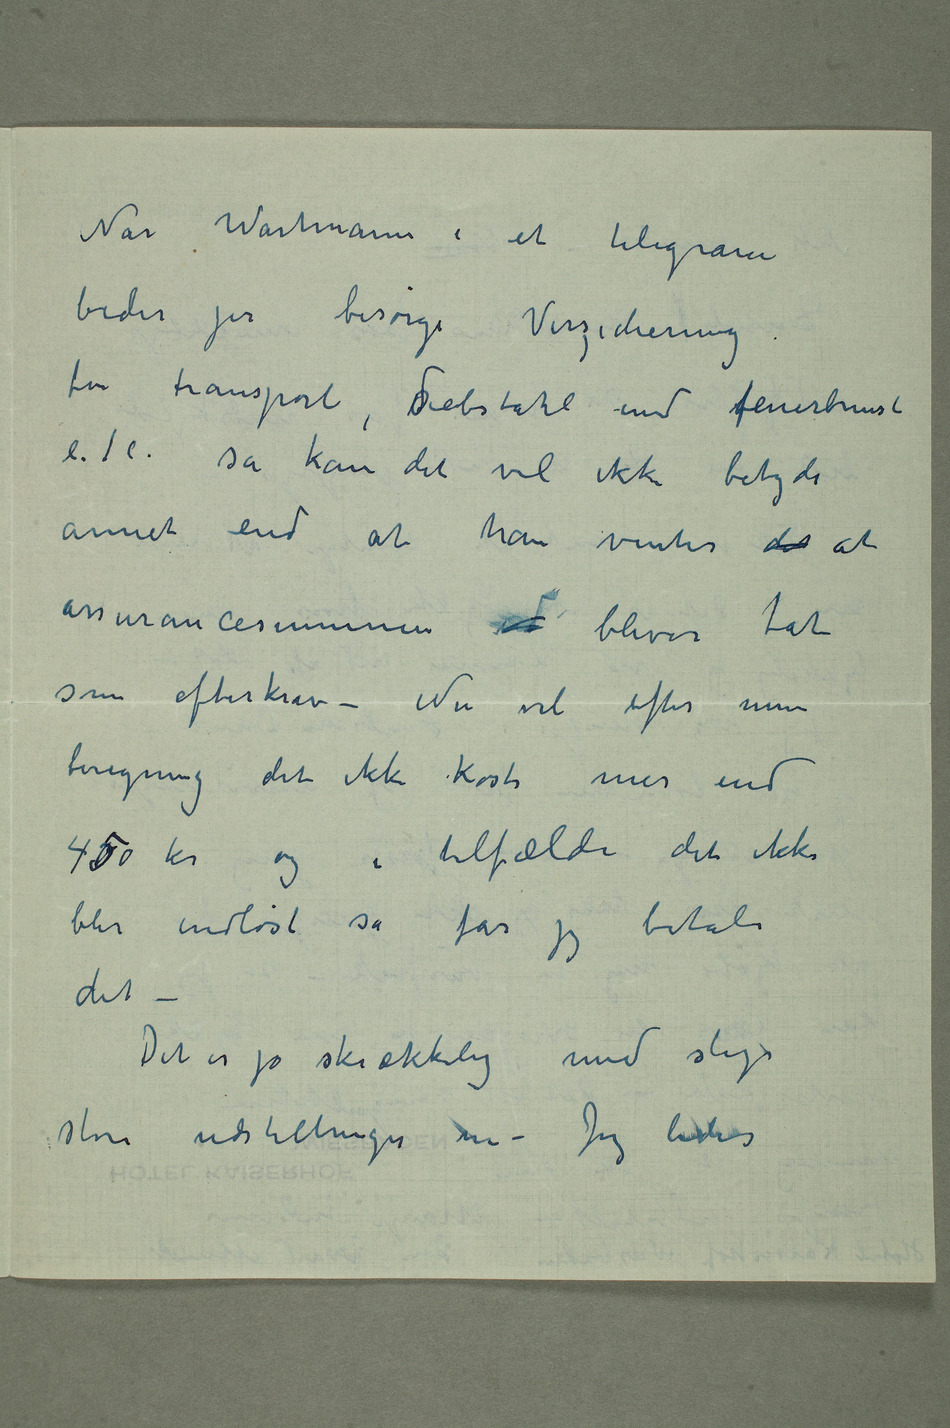 Når Wartmann i et telegram
beder jer besørge Verzicherung
for transport, Diebstahl und feuerbrunst
e. t c. så kan det vel ikke betyde
annet end at han venter det at
assurancesummen bliver tat
som efterkrav – Nu vil efter min
beregning det ikke koste mer end
450 kr og i tilfælde det ikke
blir indløst så får jeg betale
det –
Det er jo skrækkelig med slige
store udstillinger nu – Jeg
HOTEL KAISERHOF
WIESBADEN